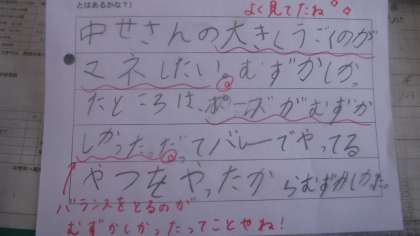 とはあるかな?)
よく見てたね。
中せさんの大きしうごくのが
マネしたい。むずかしかっ
たところは、ポーズがむずか
しかった。だってバレーでやってる
やつをやったからむずかしかった。
バランスをとるのが
むずかしかったってことやね!